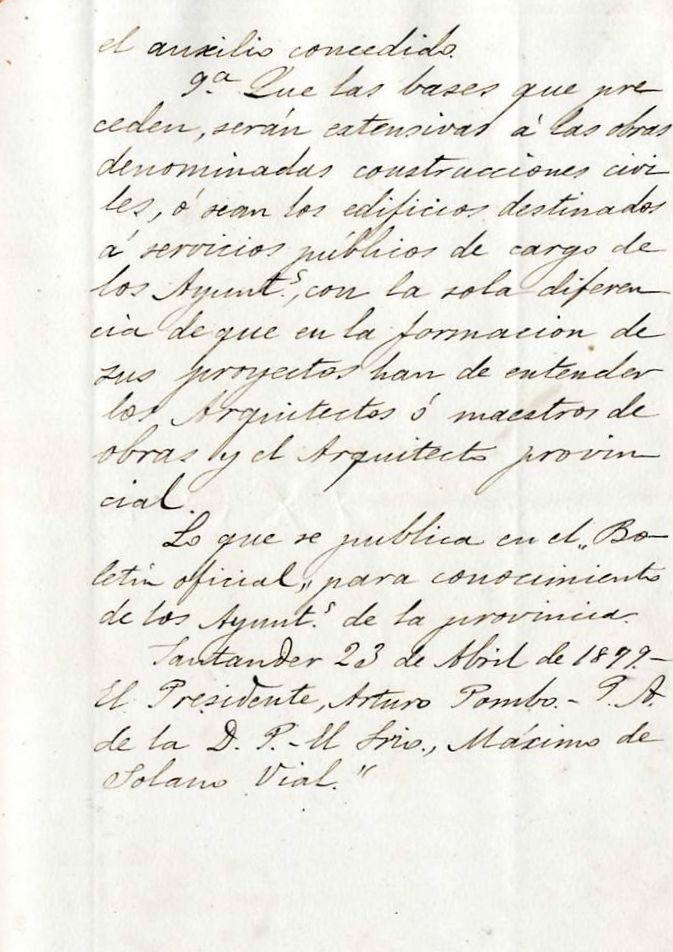 el auxilio concedido.
9.ª Que las bases que pre-
ceden, serán extensivas á las obras
denominadas construcciones civi-
les, ó sean los edificios destinados
á servicios públicos de cargo de
los Ayunt.s, con la sola diferen-
cia de que en la formacion de
sus proyectos han de entender
los Arquitectos ó maestros de
obras y el Arquitecto provin-
cial.
Lo que se publica en el „Bo-
letín oficial„ para conocimiento
de los Ayunt.s de la provincia.
Santander 23 de Abril de 1899.-
El Presidente, Arturo Pombo.- P. A.
de la D. P.- El Srio., Máximo de
Solano Vial."